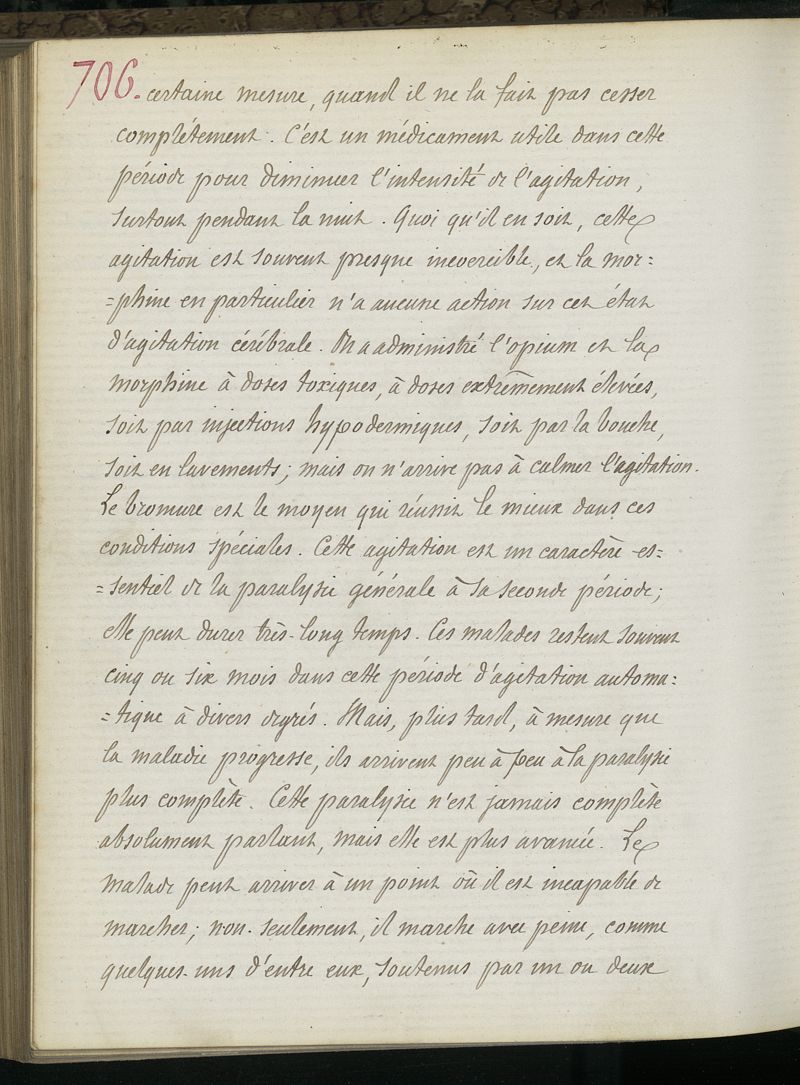 706. certaine mesure, quand il ne la fait pas cesser
complétement. C'est un médicament utile dans cette
période pour diminuer l'intensité de l'agitation,
surtout pendant la nuit. Quoi qu'il en soit, cette
agitation est souvent presque inevercible, et la mor=
=phine en particulier n'a aucune action sur cet état
d'agitation cérébrale. On a administré l'opium et la
morphine à doses toxiques, à doses extrêmement élevées,
soit par injections hypodermiques, soit par la bouche,
soit en lavements; mais on n'arrive pas à calmer l'agitation.
Le bromure est le moyen qui réussit le mieux dans ces
conditions spéciales. Cette agitation est un caractère es=
=sentiel de la paralysie générale à sa seconde période;
elle peut durer très-long temps. Ces malades restent souvent
cinq ou six mois dans cette période d'agitation automa=
=tique à divers degrés. Mais, plus tard, à mesure que
la maladie progresse, ils arrivent peu à peu à la paralysie
plus complète. Cette paralysie n'est jamais complète
absolument parlant, mais elle est plus avancée. Le
malade peut arriver à un point où il est incapable de
marcher; non-seulement, il marche avec peine, comme
quelques-uns d'entre eux, soutenus par un ou deux